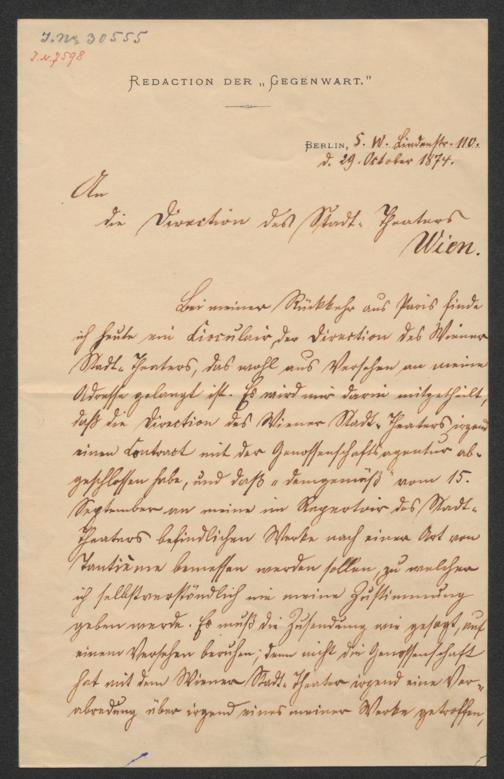 J. Nr 30555
J.N. 7598
REDACTION DER „GEGENWART."
BERLIN, S. W. Lindenstr. 110.
d. 29. October 1874.
An
die Direction des Stadt-Theaters
Wien.
Bei meiner Rückkehr aus Paris finde
ich heute ein Circulair der Direction des Wiener
Stadt-Theaters, das wohl aus Versehen an meine
Adresse gelangt ist. Es wird mir darin mitgetheilt,
daß die Direction des Wiener Stadt-Theaters irgend
einen Contract mit der Genossenschaftsagentur ab-
geschlossen habe, und daß „demgemäß" vom 15.
September an meine im Repertoir des Stadt-
Theaters befindlichen Werke nach einer Art von
Tantième bemessen werden sollen, zu welcher
ich selbstverständlich nie meine Zustimmung
geben werde. Es muß die Zusendung wie gesagt, auf
einem Versehen beruhen; denn nicht die Genossenschaft
hat mit dem Wiener Stadt-Theater irgend eine Ver-
abredung über irgend eines meiner Werke getroffen,